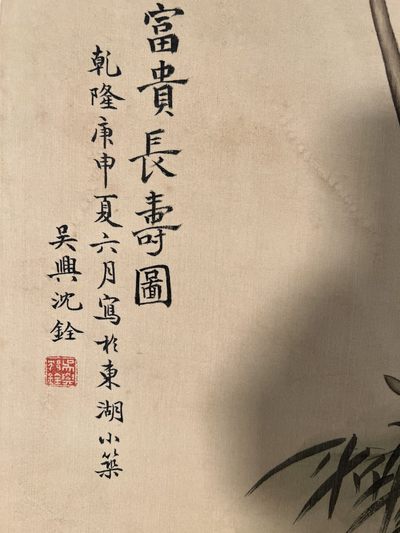 富貴長壽圖
乾隆庚申夏六月寫於東湖小築
吳興沈銓